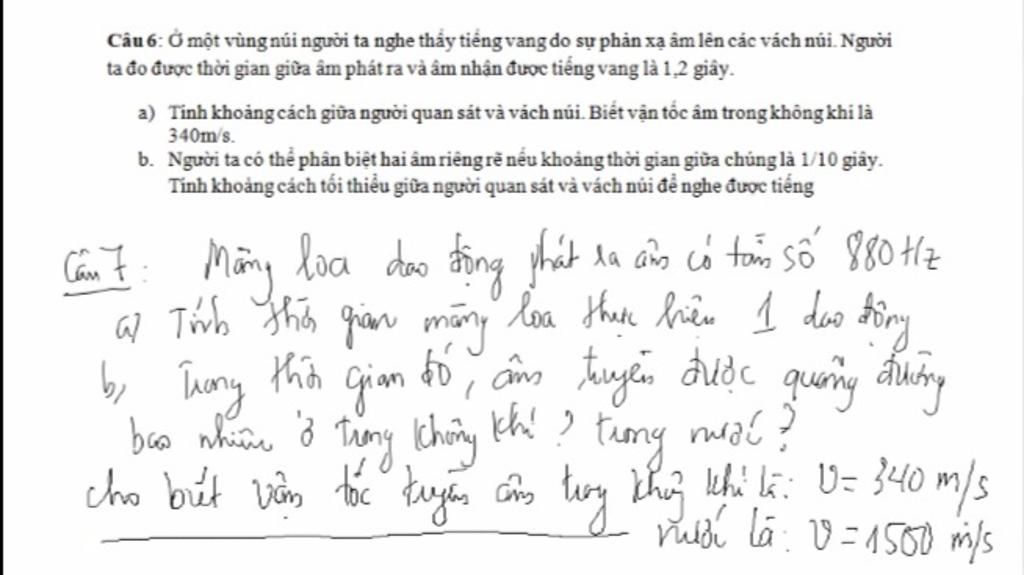 Câu 6: Ở một vùng núi người ta nghe thấy tiếng vang do sự phản xạ âm lên các vách núi. Người
ta đo được thời gian giữa âm phát ra và âm nhận được tiếng vang là 1,2 giây.
a) Tính khoảng cách giữa người quan sát và vách núi. Biết vận tốc âm trong không khí là
340m/s.
b. Người ta có thể phân biệt hai âm riêng rẽ nếu khoảng thời gian giữa chúng là 1/10 giây.
Tính khoảng cách tối thiểu giữa người quan sát và vách núi để nghe được tiếng
Câu 7: Màng loa dao động phát ra âm có tần số 880 Hz
a) Tính thời gian màng loa thực hiện 1 dao động
b, Trong thời gian đó, âm truyền được quãng đường
bao nhiêu ở trong không khí? trong nước?
cho biết vận tốc truyền âm trong không khí là: v = 340 m/s
nước là: v = 1500 m/s